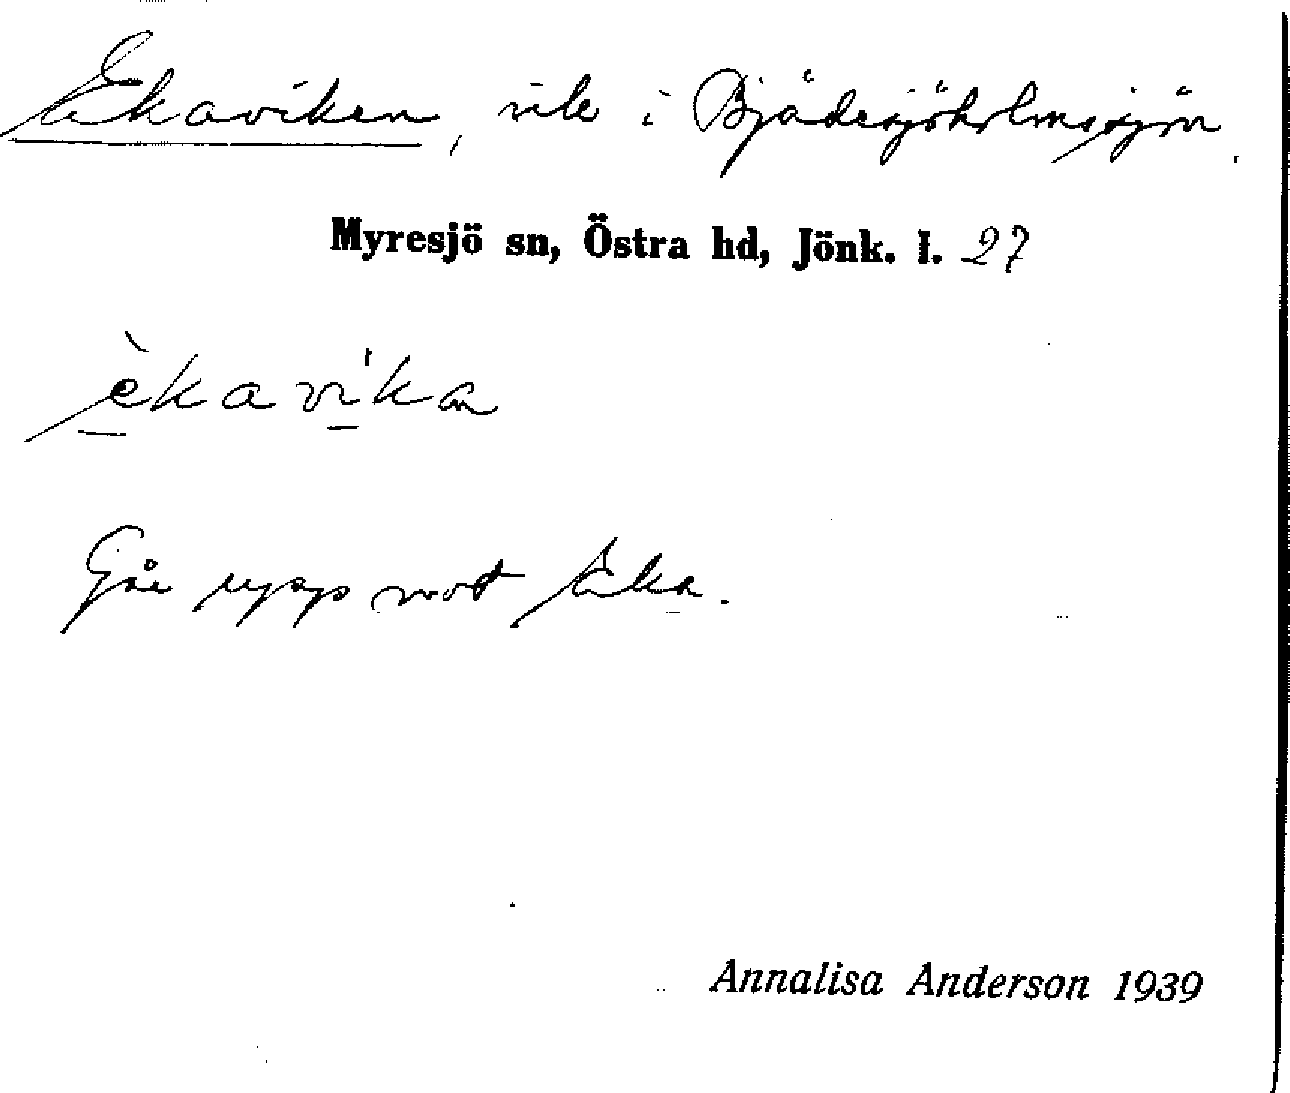 Ekaviken, vik i Bjädesjöholmssjön.
Myresjö sn, Östra hd, Jönk. l. 27
èkavi'ka
Går upp mot Eka.
Annalisa Anderson 1939